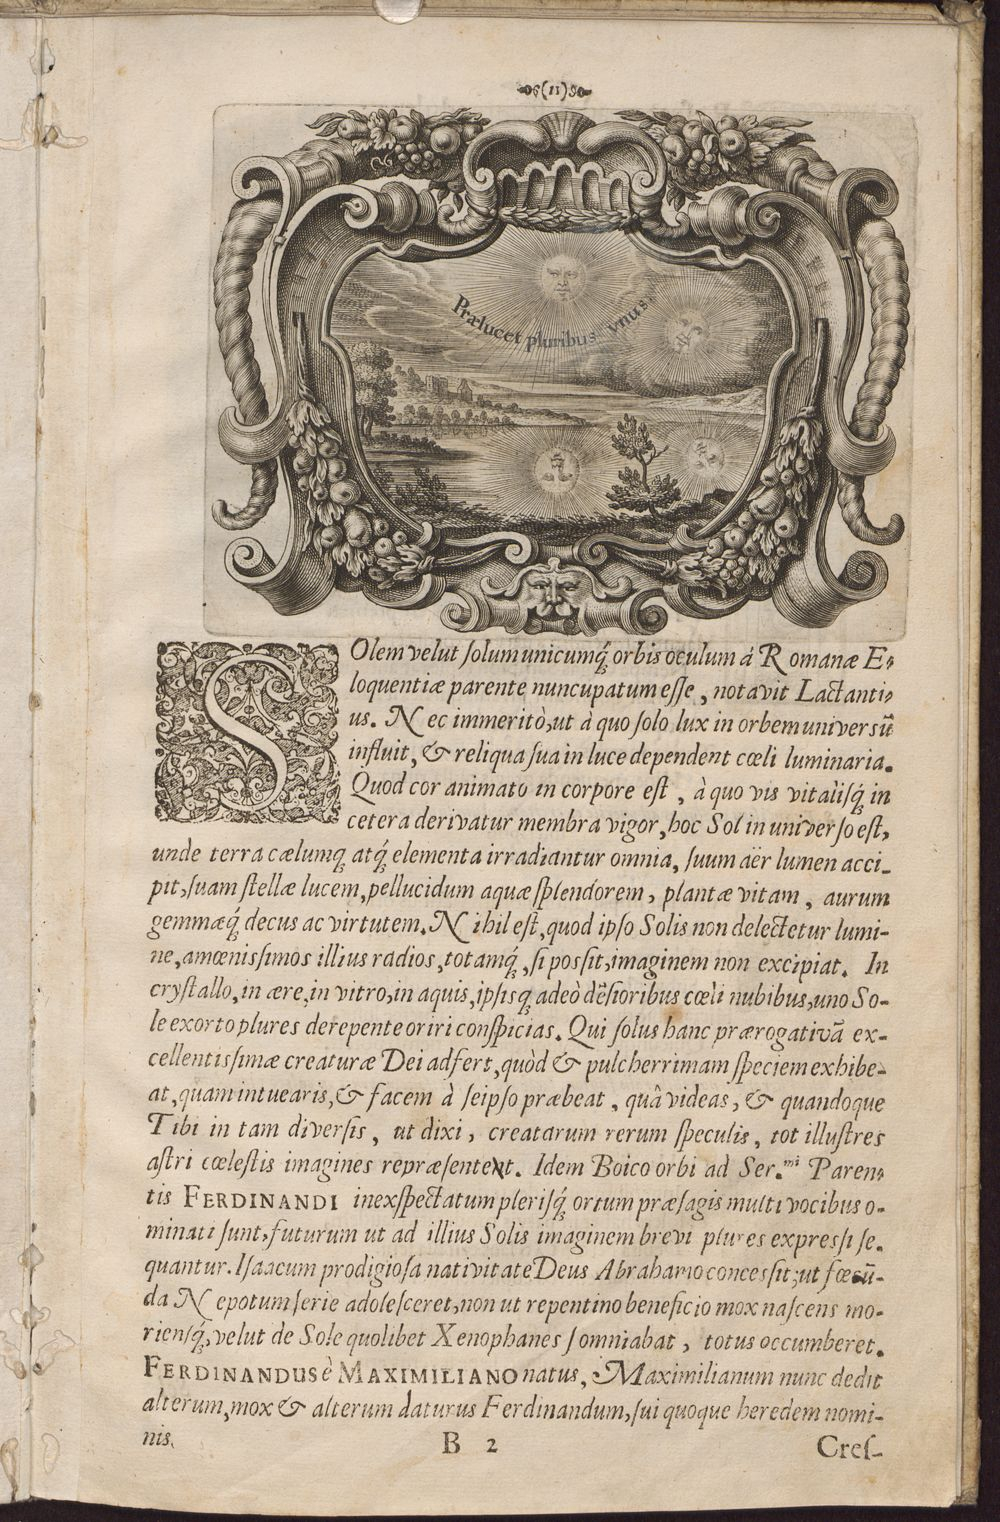 (11)
Prælucet pluribus vnus
SOlem velut ſolum unicumq́; orbis oculum á Romanæ E-
loquentiæ parente nuncupatum eſſe, notavit Lactanti-
us. Nec immeritò, ut à quo ſolo lux in orbem universũ
influit, & reliqua ſua in luce dependent cœli luminaria.
Quod cor animato in corpore eſt, à quo vis vitaliſq́; in
cetera derivatur membra vigor, hoc Sol in univerſo eſt,
unde terra cælumq; atq́; elementa irradiantur omnia, ſuum aër lumen acci-
pit, ſuam ſtellæ lucem, pellucidum aquæ ſplendorem, plantæ vitam, aurum
gemmæq́; decus ac virtutem. Nihil eſt, quod ipſo Solis non delectetur lumi-
ne, amœnisſimos illius radios, totamq́;, ſi posſit, imaginem non excipiat. In
cryſtallo, in ære, in vitro, in aquis, ipſisq; adeò dẽſioribus cœli nubibus, uno So-
le exorto plures derepente oriri conſpicias. Qui ſolus hanc prærogativã ex-
cellentisſimæ creaturæ Dei adfert, quòd & pulcherrimam ſpeciem exhibe-
at, quam intuearis, & facem à ſeipſo præbeat, quâ videas, & quandoque
Tibi in tam diverſis, ut dixi, creatarum rerum ſpeculis, tot illuſtres
aſtri cœleſtis imagines repræſentent. Idem Boico orbi ad Ser.mi Paren-
tis FERDINANDI inexſpectatum pleriſq́; ortum præſagis multi vocibus o-
minati ſunt, futurum ut ad illius Solis imaginem brevi plures expresſi ſe-
quantur. Iſaacum prodigioſa nativitate Deus Abrahamo concesſit; ut fœcũ-
da Nepotum ſerie adoleſceret, non ut repentino beneficio mox naſcens mo-
rienſq́;, velut de Sole quolibet Xenophanes ſomniabat, totus occumberet.
FERDINANDUS è MAXIMILIANO natus, Maximilianum nunc dedit
alterum, mox & alterum daturus Ferdinandum, ſui quoque heredem nomi-
nis.
B 2
Creſ-